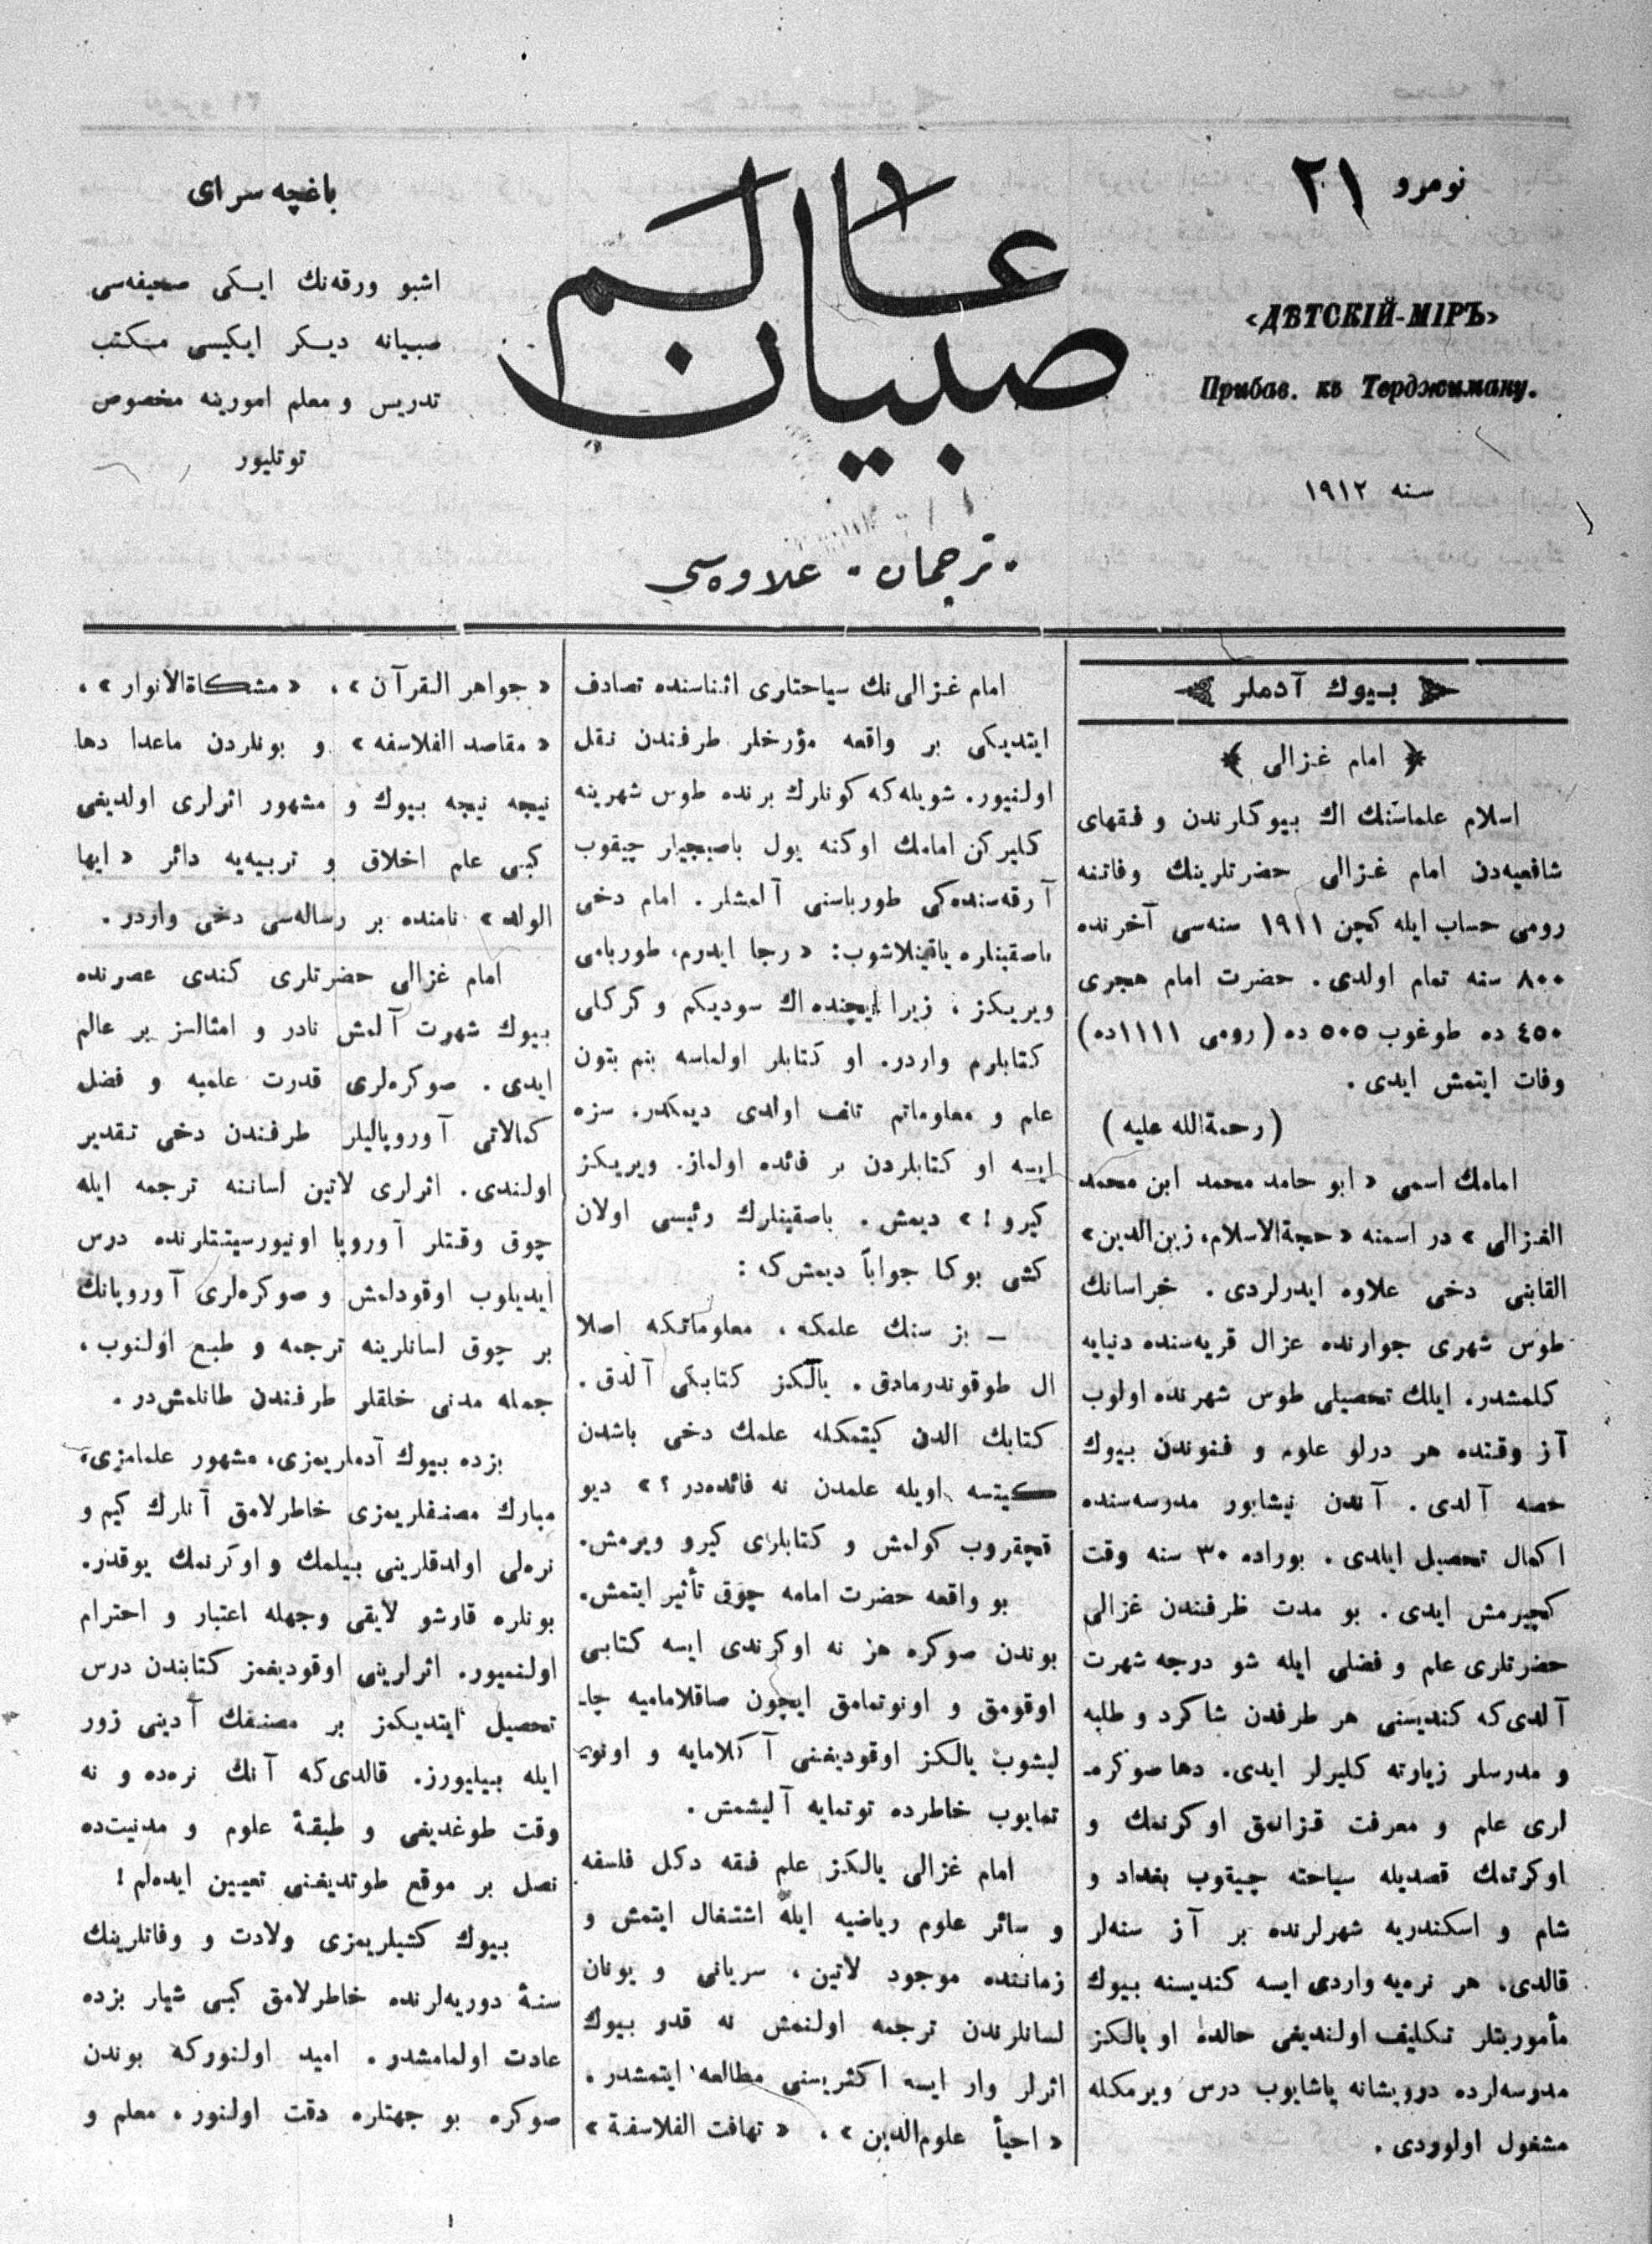 نومرو ٢١
«ДѢТСКІЙ-МІРЪ»
Прибав. къ Терджиману.
سنه ١٩١٢
عالم
صبيان
ترجمان ـ علاوه‌سى
باغچه سراى
اشبو ورقه‌نك ايكى صحيفه‌سى
صبيانه ديكر ايكيسى مكتب
تدريس و معلم امورينه مخصوص
توتليور
بيوك آدملر
﴿ امام غزالى ﴾
اسلام علماسنك اك بيوكلرندن و فقهاى
شافعيه‌دن امام غزالى حضرتلرينك وفاتنه
رومى حساب ايله كچن ١٩١١ سنه‌سى آخرنده
٨٠٠ سنه تمام اولدى. حضرت امام هجرى
٤٥٠ ده طوغوب ٥٠٥ ده (رومى ١١١١ده)
وفات ايتمش ايدى.
(رحمةالله عليه)
امامك اسمى «ابو حامد محمد ابن محمد
الغزالى» در اسمنه «حجةالاسلام، زين‌الدين»
القابنى دخى علاوه ايدرلردى. خراسانك
طوس شهرى جوارنده غزال قريه‌سنده دنيايه
كلمشدر. ايلك تحصيلى طوس شهرنده اولوب
آز وقتده هر درلو علوم و فنوندن بيوك
حصه آلدى. آندن نيشابور مدرسه‌سنده
اكمال تحصيل ايلدى. بوراده ٣٠ سنه وقت
كچيرمش ايدى. بو مدت ظرفندن غزالى
حضرتلرى علم و فضلى ايله شو درجه شهرت
آلدى‌كه كنديسنى هر طرفدن شاكرد و طلبه
و مدرسلر زيارته كليرلر ايدى. دها صوكره‌ـ
لرى علم و معرفت قزانمق اوكرنمك و
اوكرتمك قصديله سياحته چيقوب بغداد و
شام و اسكندريه شهرلرنده بر آز سنه‌لر
قالدى. هر نره‌يه واردى ايسه كنديسنه بيوك
مأموريتلر تكليف اولنديغى حالده او يالكز
مدرسه‌لرده درويشانه ياشايوب درس ويرمكله
مشغول اولوردى.
امام غزالى‌نك سياحتلرى اثناسنده تصادف
ايتديكى بر واقعه مؤرخلر طرفندن نقل
اولنيور. شويله‌كه كونلرك برنده طوس شهرينه
كليركن امامك اوكنه يول باصيجيلر چيقوب
آرقه‌سنده‌كى طورباسنى آلمشلر. امام دخى
باصقينلره ياقينلاشوب: «رجا ايدرم، طوربامى
ويريكز، زيرا ايچنده اك سوديكم و كركلى
كتابلرم واردر. او كتابلر اولماسه بنم بتون
علم و معلوماتم تلف اولدى ديمكدر. سزه
ايسه او كتابلردن بر فائده اولماز. ويريكز
كيرو!» ديمش. باصقينلرك رئيسى اولان
كشى بوكا جواباً ديمش‌كه:
— بز سنك علمكه، معلوماتكه اصلا
ال طوقوندرمادق. يالكز كتابكى آلدق.
كتابك الدن كيتمكله علمك دخى باشدن
كيتسه اويله علمدن نه فائده‌در؟» ديو
قهقروب كولمش و كتابلرى كيرو ويرمش.
بو واقعه حضرت امامه چوق تأثير ايتمش.
بوندن صوكره هر نه اوكرندى ايسه كتابى
اوقومق و اونوتمامق ايچون صاقلاماميه چاـ
ليشوب يالكز اوقوديغنى آكلامايه و اونوـ
تمايوب خاطرده توتمايه آليشمش.
امام غزالى يالكز علم فقه دكل فلسفه
و سائر علوم رياضيه ايله اشتغال ايتمش و
زماننده موجود لاتين، سريانى و يونان
لسانلرندن ترجمه اولنمش نه قدر بيوك
اثرلر وار ايسه اكثريسنى مطالعه ايتمشدر.
«احيأ علوم‌الدين»، «تهافت الفلاسفة»
«جواهر القرآن»، «مشكاةالانوار»،
«مقاصد الفلاسفه» و بونلردن ماعدا دها
نيجه نيجه بيوك و مشهور اثرلرى اولديغى
كبى علم اخلاق و تربيه‌يه دائر «ايها
الولد» نامنده بر رساله‌سى دخى واردر.
امام غزالى حضرتلرى كندى عصرنده
بيوك شهرت آلمش نادر و امثالسز بر عالم
ايدى. صوكره‌لرى قدرت علميه و فضل
كمالاتى آوروپاليلر طرفندن دخى تقدير
اولندى. اثرلرى لاتين لساننه ترجمه ايله
چوق وقتلر آوروپا اونيورسيتتلرنده درس
ايديلوب اوقودلمش و صوكره‌لرى آوروپانك
بر چوق لسانلرينه ترجمه و طبع اولنوب،
جمله مدنى خلقلر طرفندن طانلمش‌در.
بزده بيوك آدملريمزى، مشهور علمامزى،
مبارك مصنفلريمزى خاطرلامق آنلرك كيم و
نره‌لى اولدقلرينى بيلمك و اوكرنمك يوقدر.
بونلره قارشو لايقى وجهله اعتبار و احترام
اولنميور. اثرلرينى اوقوديغمز كتابندن درس
تحصيل ايتديكمز بر مصنفك آدينى زور
ايله بيليورز. قالدى‌كه آنك نره‌ده و نه
وقت طوغديغى و طبقهٔ علوم و مدنيت‌ده
نصل بر موقع طوتديغنى تعيين ايده‌لم!
بيوك كشيلريمزى ولادت و وفاتلرينك
سنهٔ دوريه‌لرنده خاطرلامق كبى شيلر بزده
عادت اولمامشدر. اميد اولنوركه بوندن
صوكره بو جهتلره دقت اولنور، معلم و